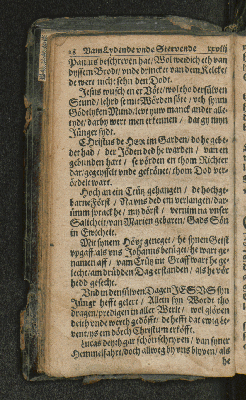 Vam Lydende vnde Steruende xxviij
Paulus beschreuen hat / Wol werdich eth van
dyssem Brode / vnde drincket van dem Kelcke /
de wert nicht sehn den Dodt.
Jesus wusch en er Föte / wol tho dersüluen
Stund / lehrt se mit Wörden söte / vth synem
Gödtlyken Mund / leret yuw manck ander alle
tyde / darby wert men erkennen / dat gy mynn
Jünger syndt.
Christus de HErr im Garden / do he gebe-
det had / der Jöden he de warden / van en
gebunden hart / se vörden en thom Richter
dar / gegeyschet vnde gekrönet / thom Dod ver-
ordelt wart.
Hoch an ein Crütz gehangen / de hochge-
barne Först / Na vns ded em verlangen / dar-
ümm sprack he / my dörst / vernim na vnser
Salicheit / van Marien gebaren / Gads Sön
in Ewicheit.
Mit synem Höuet geneget / he synen Geist
vpgaff / als vns Johannes betüget / he wart ge-
namen aff / vam Crütz int Graff wart he ge-
lecht / am drüdden Dag erstanden / als he vör
hedd gesecht.
Vnd in den süluen Dagen JESVS syn
Jünger hefft gelert / Allein syn Wordt tho
dragen / predigen in aller Werlt / wol glöuen
deith vnde werth gedöfft / de hefft dat ewige le-
uent / ys em dörch Christum erköfft.
Lucas deith gar schön schryuen / van syner
Hemmelfahrt / doch allweg by vns blyuen / als
he